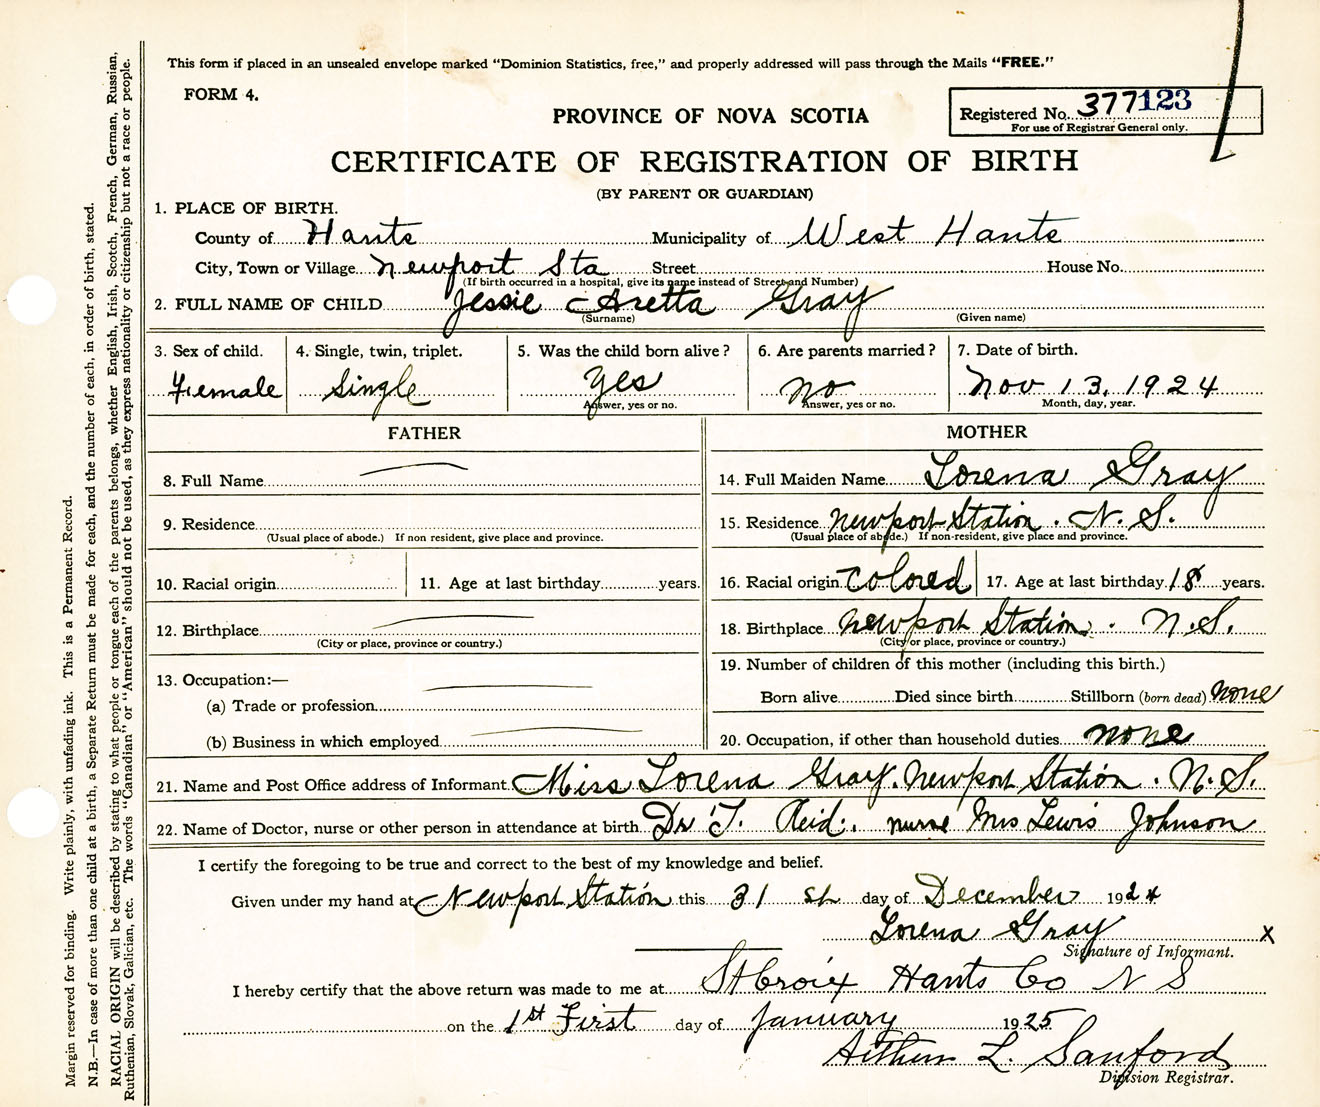 This form if placed in an unsealed envelope marked "Dominion Statistics, free," and properly addressed will pass through the Mails "FREE."
FORM 4.
PROVINCE OF NOVA SCOTIA
Registered No. 377123
For use of Registrar General only.
CERTIFICATE OF REGISTRATION OF BIRTH
(BY PARENT OR GUARDIAN)
1. PLACE OF BIRTH.
County of Hants Municipality of West Hants
City, Town or Village Newport Sta Street House No.
(If birth occurred in a hospital, give its name instead of Street and Number)
2. FULL NAME OF CHILD Jessie Aretta Gray
(Surname) (Given name)
3. Sex of child. 4. Single, twin, triplet. 5. Was the child born alive? 6. Are parents married? 7. Date of birth.
Female Single Yes No Nov 13, 1924
Answer, yes or no. Answer, yes or no. Month, day, year.
FATHER MOTHER
8. Full Name 14. Full Maiden Name Lorena Gray
9. Residence 15. Residence Newport Station. N. S.
(Usual place of abode.) If non resident, give place and province. (Usual place of abode.) If non-resident, give place and province.
10. Racial origin 11. Age at last birthday years. 16. Racial origin Colored 17. Age at last birthday 18 years.
12. Birthplace 18. Birthplace Newport Station. N.S.
(City or place, province or country.) (City or place, province or country.)
13. Occupation:— 19. Number of children of this mother (including this birth.)
(a) Trade or profession Born alive Died since birth Stillborn (born dead) None
(b) Business in which employed 20. Occupation, if other than household duties none
21. Name and Post Office address of Informant Miss Lorena Gray. Newport Station. N. S.
22. Name of Doctor, nurse or other person in attendance at birth Dr T. Reid. nurse Mrs Lewis Johnson
I certify the foregoing to be true and correct to the best of my knowledge and belief.
Given under my hand at Newport Station this 31 st day of December 1924
Lorena Gray x
Signature of Informant.
I hereby certify that the above return was made to me at St Croix Hants Co N S
on the 1st First day of January 1925
Arthur L. Sanford
Division Registrar.
Margin reserved for binding. Write plainly, with unfading ink. This is a Permanent Record.
N.B.—In case of more than one child at a birth, a Separate Return must be made for each, and the number of each, in order of birth, stated.
RACIAL ORIGIN will be described by stating to what people or tongue each of the parents belongs, whether English, Irish, Scotch, French, German, Russian,
Ruthenian, Slovak, Galician, etc. The words "Canadian" or "American" should not be used, as they express nationality or citizenship but not a race or people.